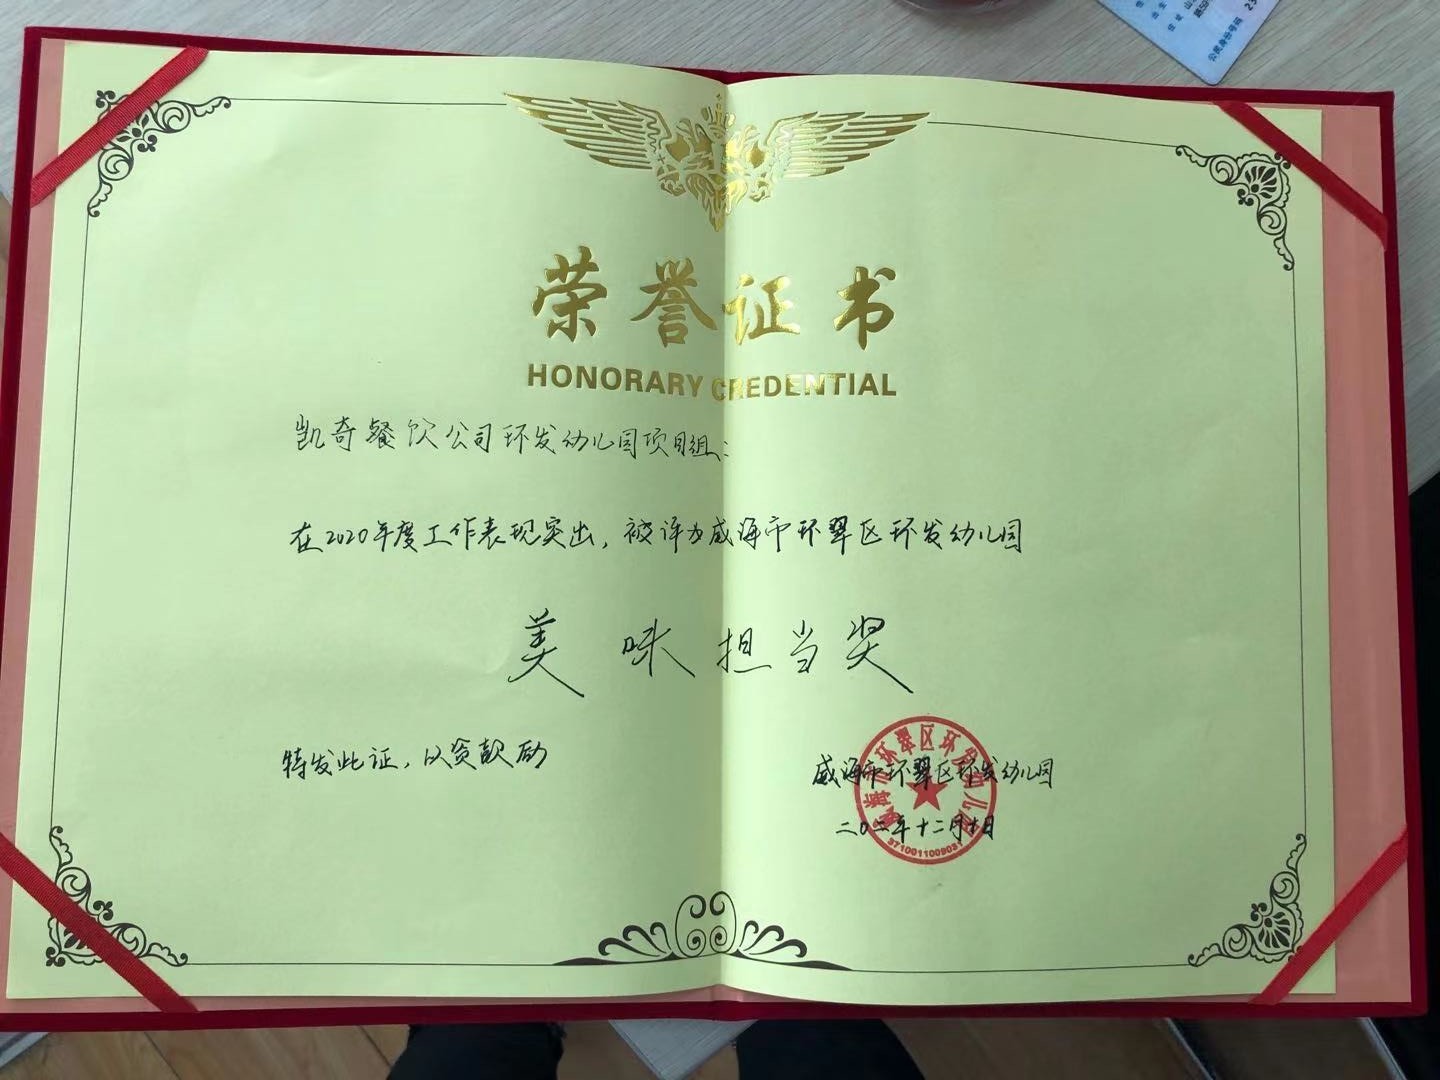 荣誉证书
HONORARY CREDENTIAL
凯奇餐饮公司环发幼儿园项目组：
在2020年度工作表现突出，被评为威海市环翠区环发幼儿园
美味担当奖
特发此证，以资鼓励
威海市环翠区环发幼儿园
二〇二年十二月十日
威海市环翠区环发幼儿园
3710011009031
公民身份号码